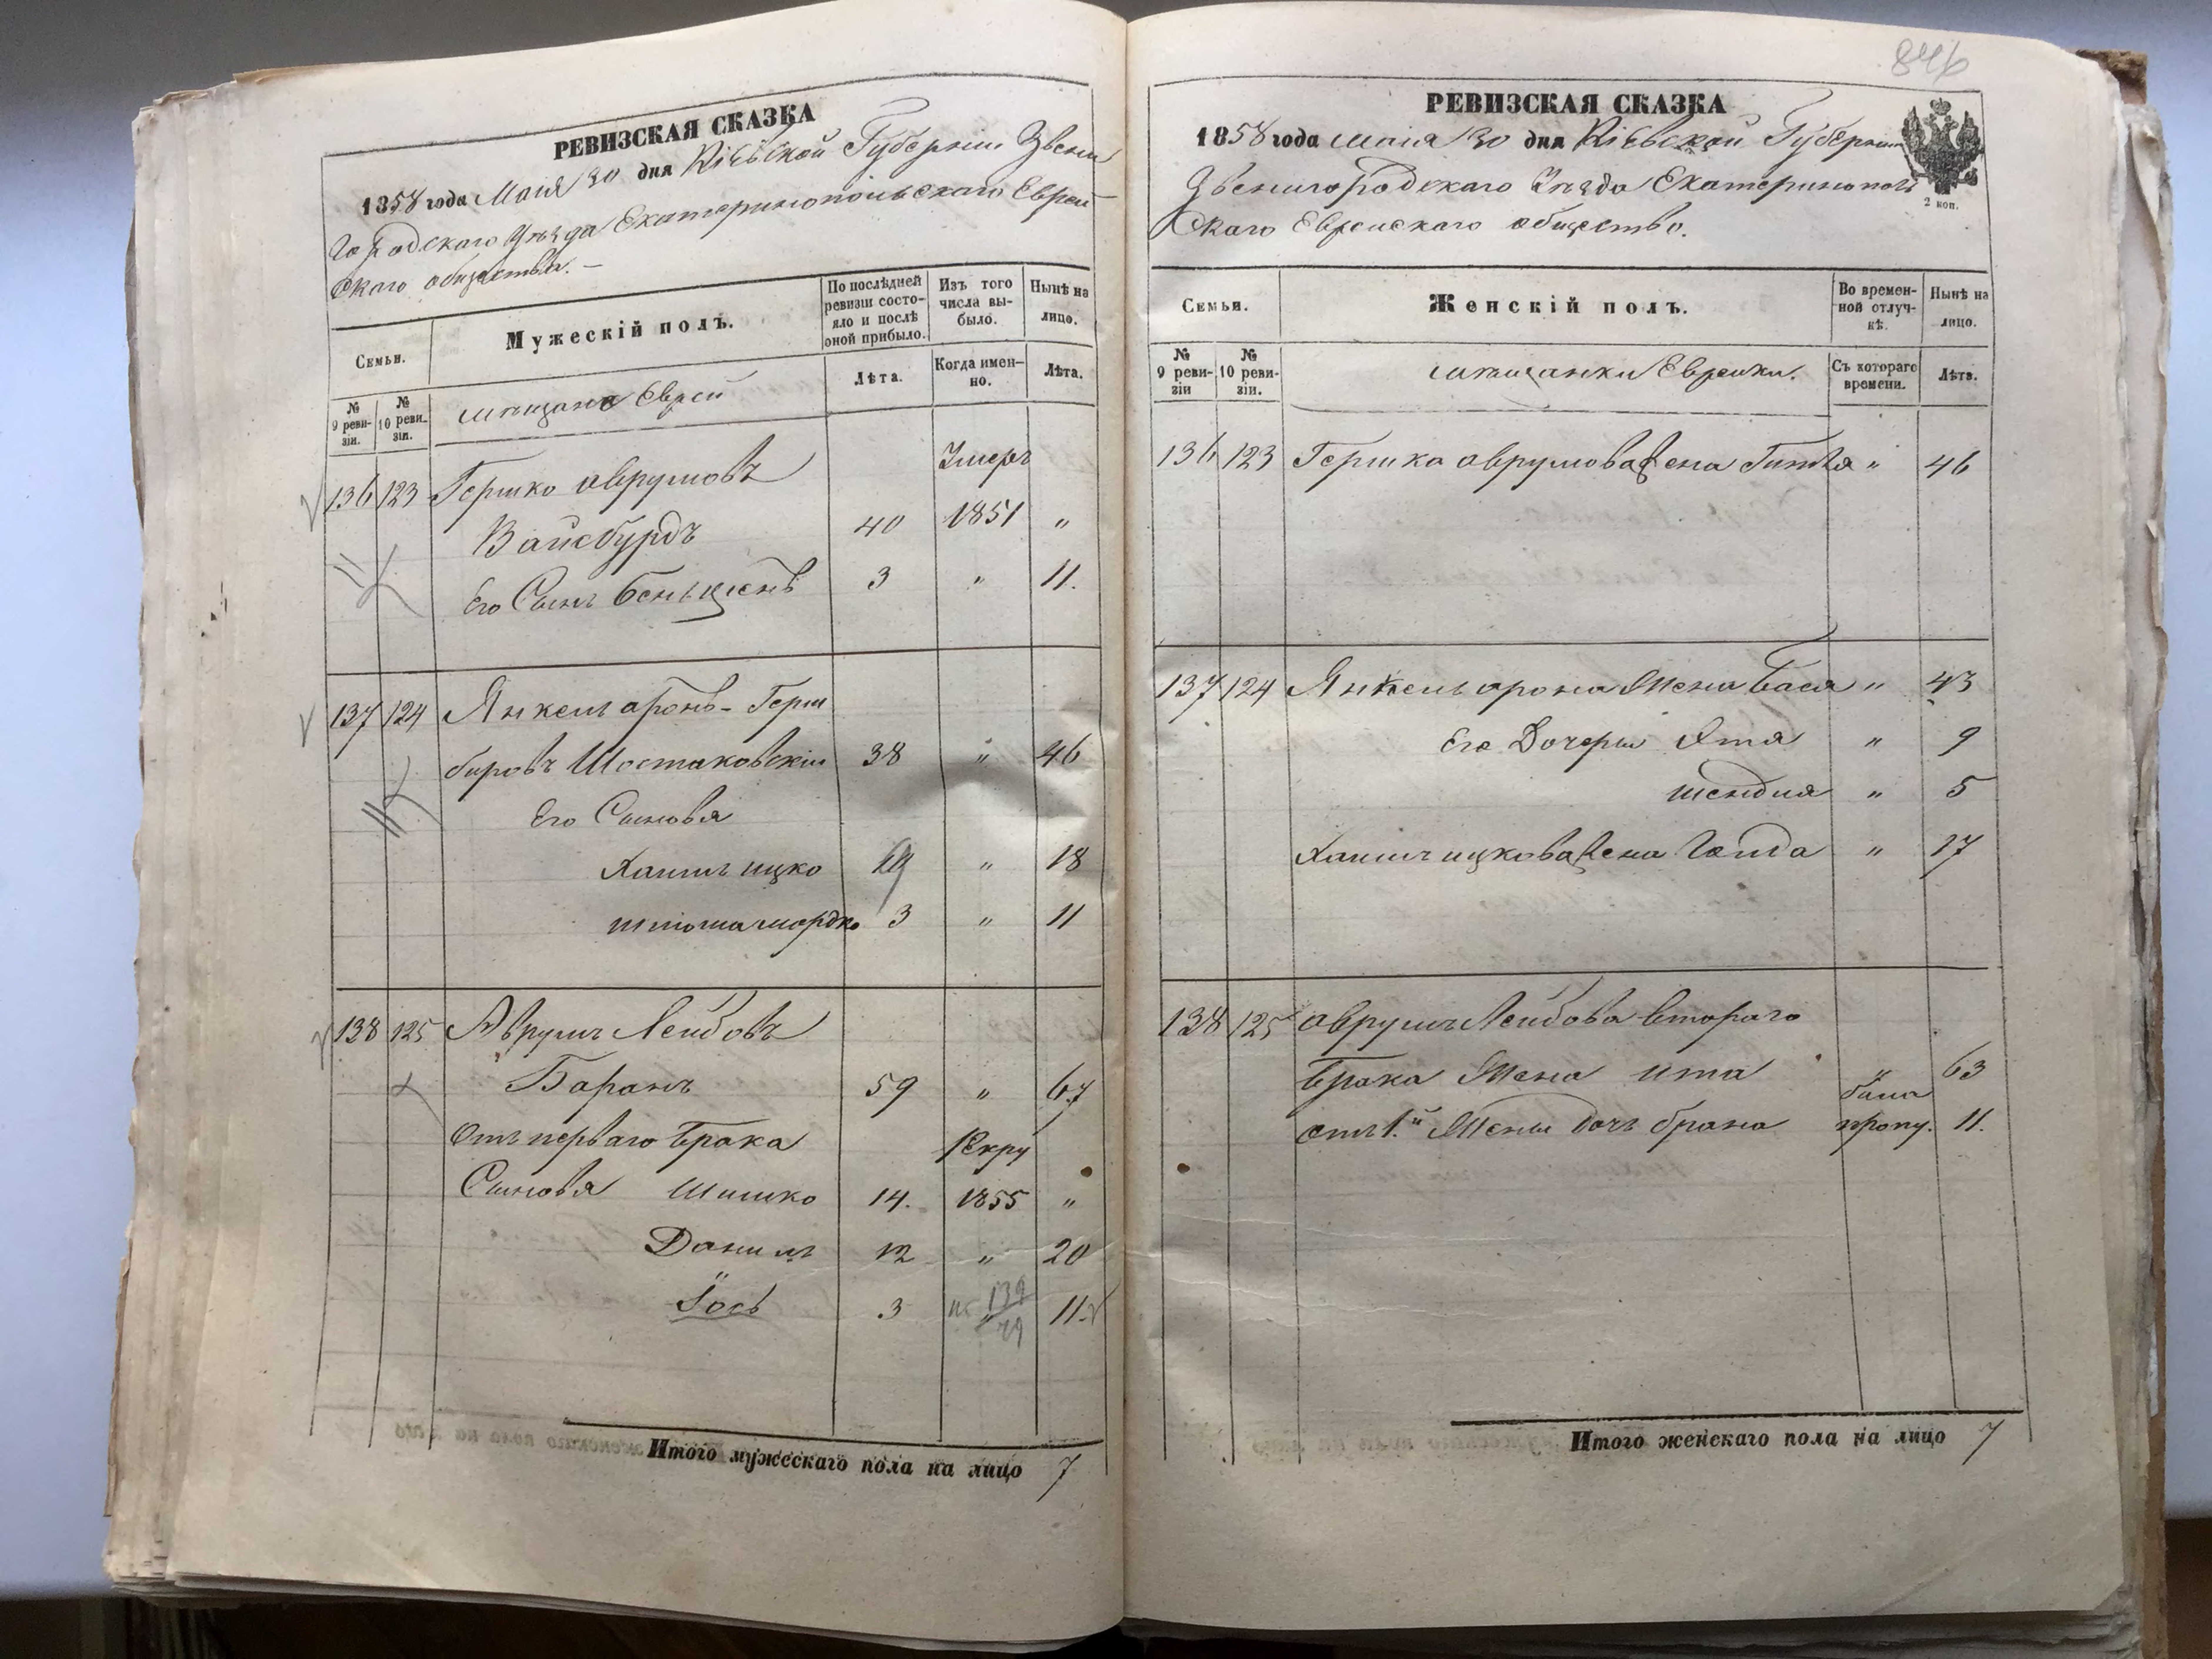 846
РЕВИЗСКАЯ СКАЗКА
1858 года Маія 30 дня Кіевской Губерніи Звени
городскаго Уѣзда Екатеринопольскаго Еврей
скаго общества. —
Семьи.
Мужескій полъ.
По послѣдней ревизіи состояло и послѣ оной прибыло.
Изъ того числа выбыло.
Нынѣ на лицо.
№ 9 ревизіи.
№ 10 ревизіи.
мѣщане Евреи
Лѣта.
Когда именно.
Лѣта.
136 123 Гершко Аврумовъ Умеръ
Вайсбурдъ 40 1851 „
Его Сынъ Беньцienъ 3 „ 11.
137 124 Янкель Аронъ-Герш
беровъ Шостаковскій 38 „ 46
Его Сыновья
Хаимъ Ицко „ 18
Шлиома Мордко 3 „ 11
138 125 Аврумъ Лейбовъ
Баранъ 59 „ 67
Отъ перваго брака Рекру
Сыновья Шимко 14. 1855 „
Данилъ 12 „ 20
Іось 3 „ 11.
Итого мужескаго пола на лицо 7
РЕВИЗСКАЯ СКАЗКА
1858 года Маія 30 дня Кіевской Губерніи
Звенигородскаго Уѣзда Екатеринополь
скаго Еврейскаго общество.
2 коп.
Семьи.
Женскій полъ.
Во временной отлучкѣ.
Нынѣ на лицо.
№ 9 ревизіи
№ 10 ревизіи.
мѣщанки Еврейки.
Съ котораго времени.
Лѣта.
136 123 Гершка Аврумова жена Гитля „ 46
137 124 Янкель Арона Жена Бася „ 43
Его Дочери Этя „ 9
Шендля „ 5
Хаимъ Ицкова жена Голда „ 17
138 125 Аврумъ Лейбова втораго
брака Жена Ита „ 63
отъ 1.й Жены дочь Брана была пропу. 11.
Итого женскаго пола на лицо 7